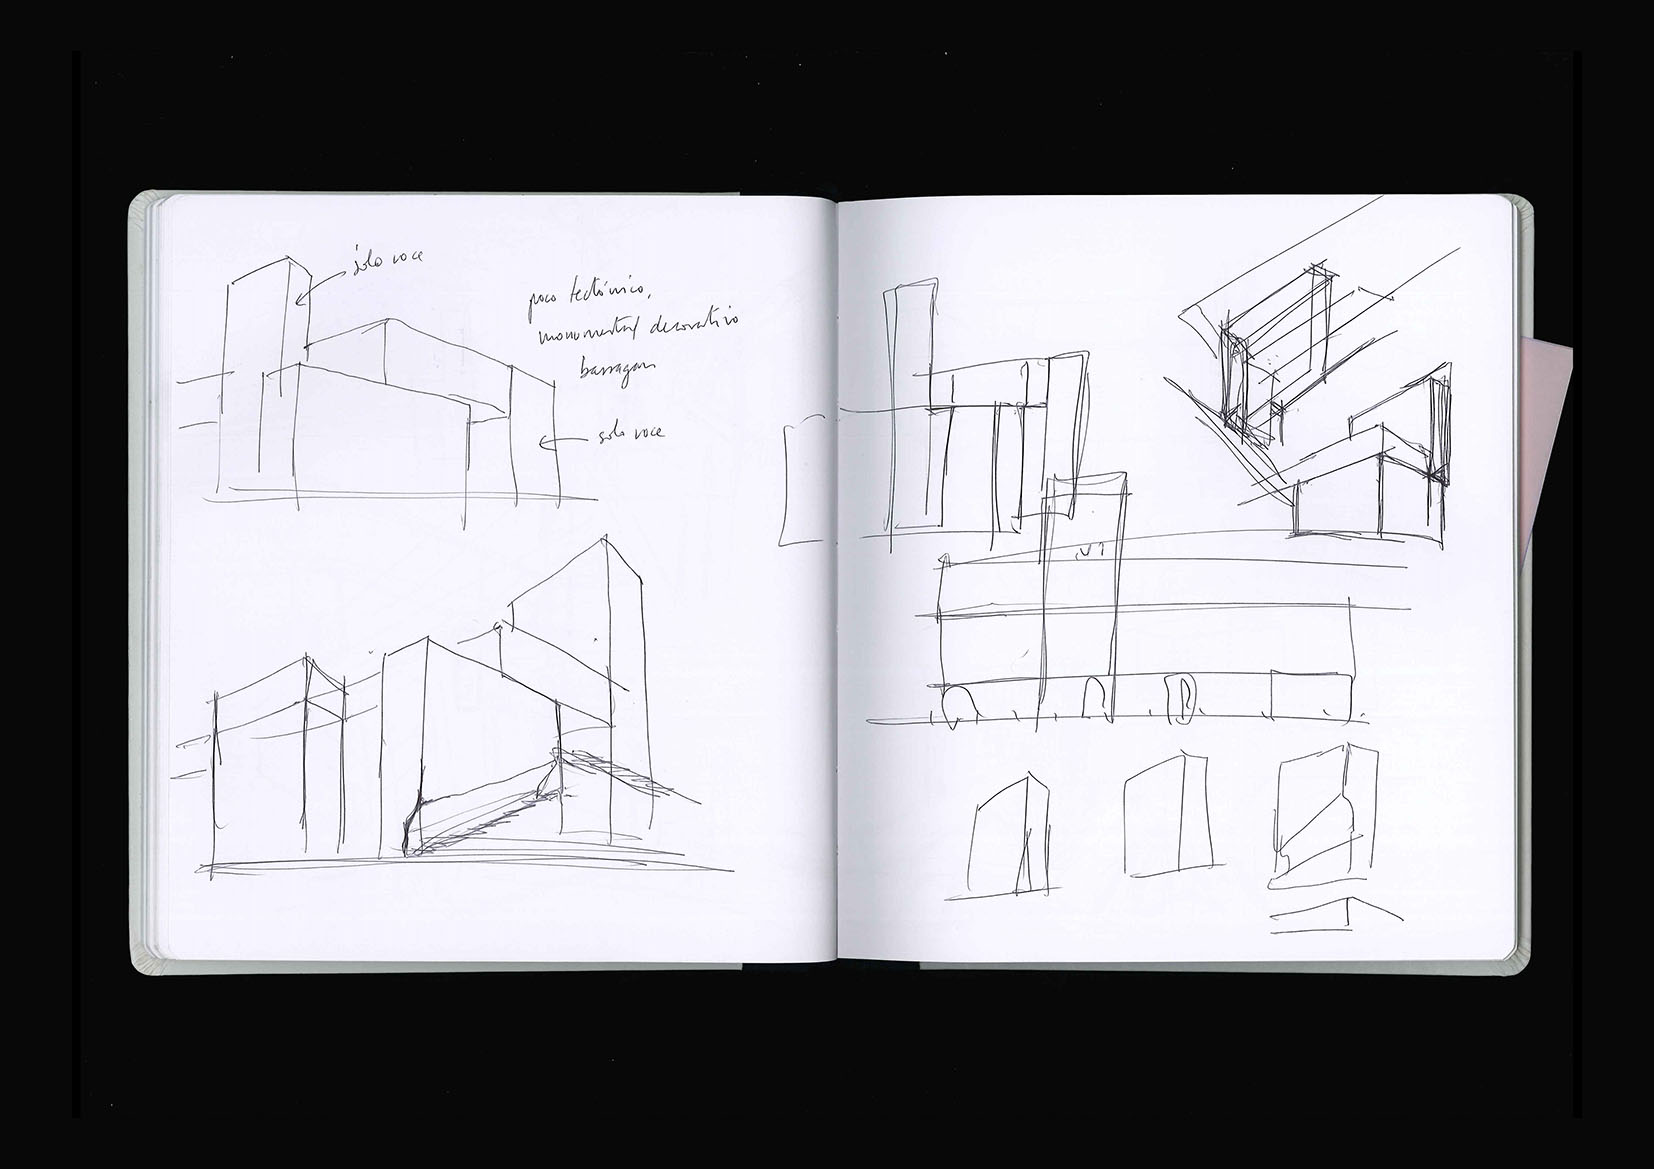 solo roce
poco tectónico,
monumental decorativo
barragan
solo roce